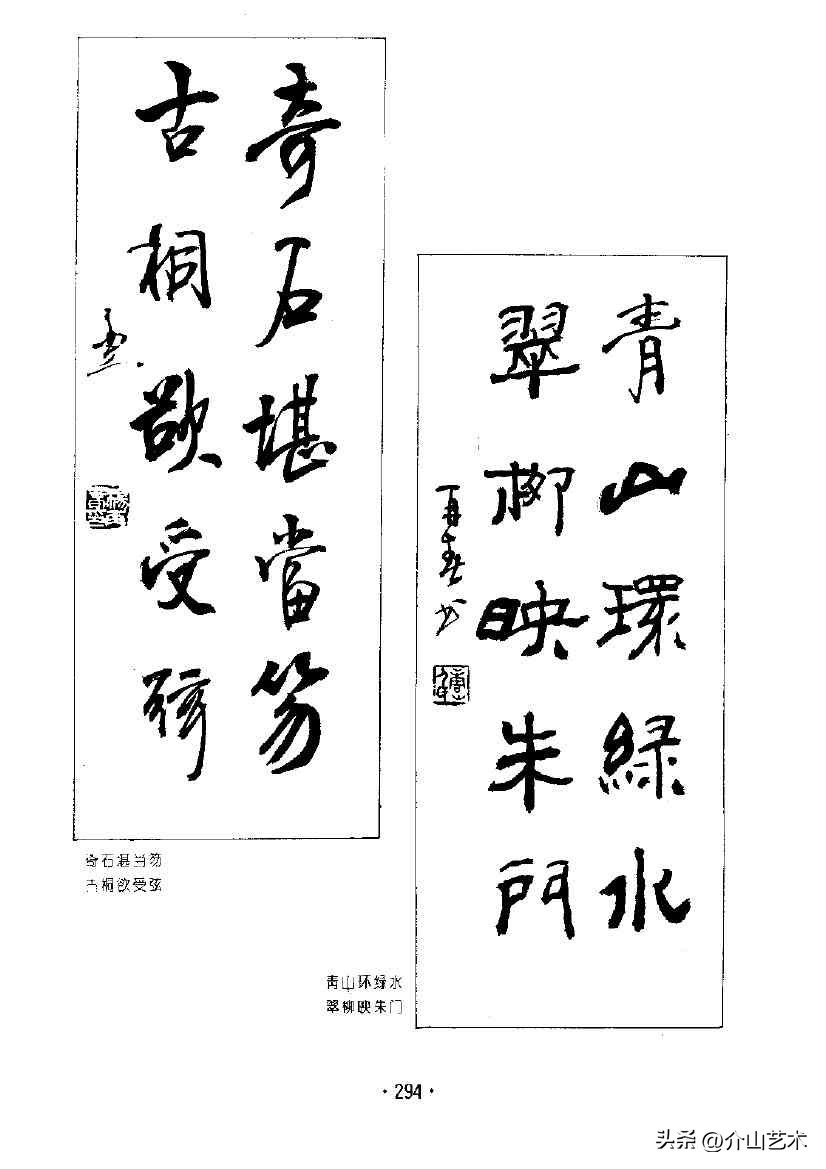 奇石堪當笏
古桐欲受弦
青山環綠水
翠柳映朱門
再春书
奇石堪当笏
古桐欲受弦
青山环绿水
翠柳映朱门
·294·
头条 @介山艺术